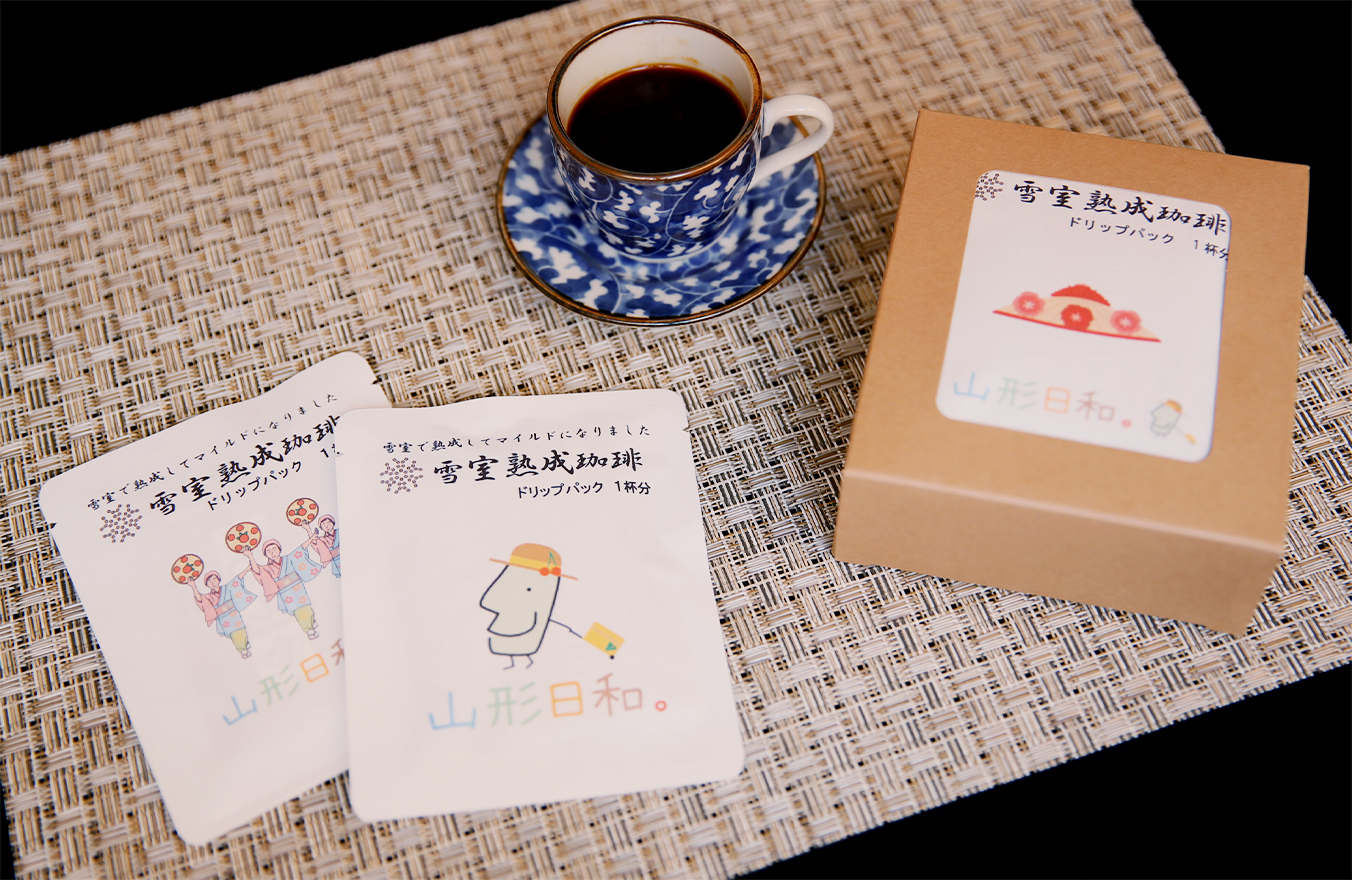 雪室で熟成してマイルドになりました
雪室熟成珈琲
ドリップパック
山形日
雪室で熟成してマイルドになりました
雪室熟成珈琲
ドリップパック 1杯分
山形日和。
雪室熟成珈琲
ドリップパック 1杯分
山形日和。